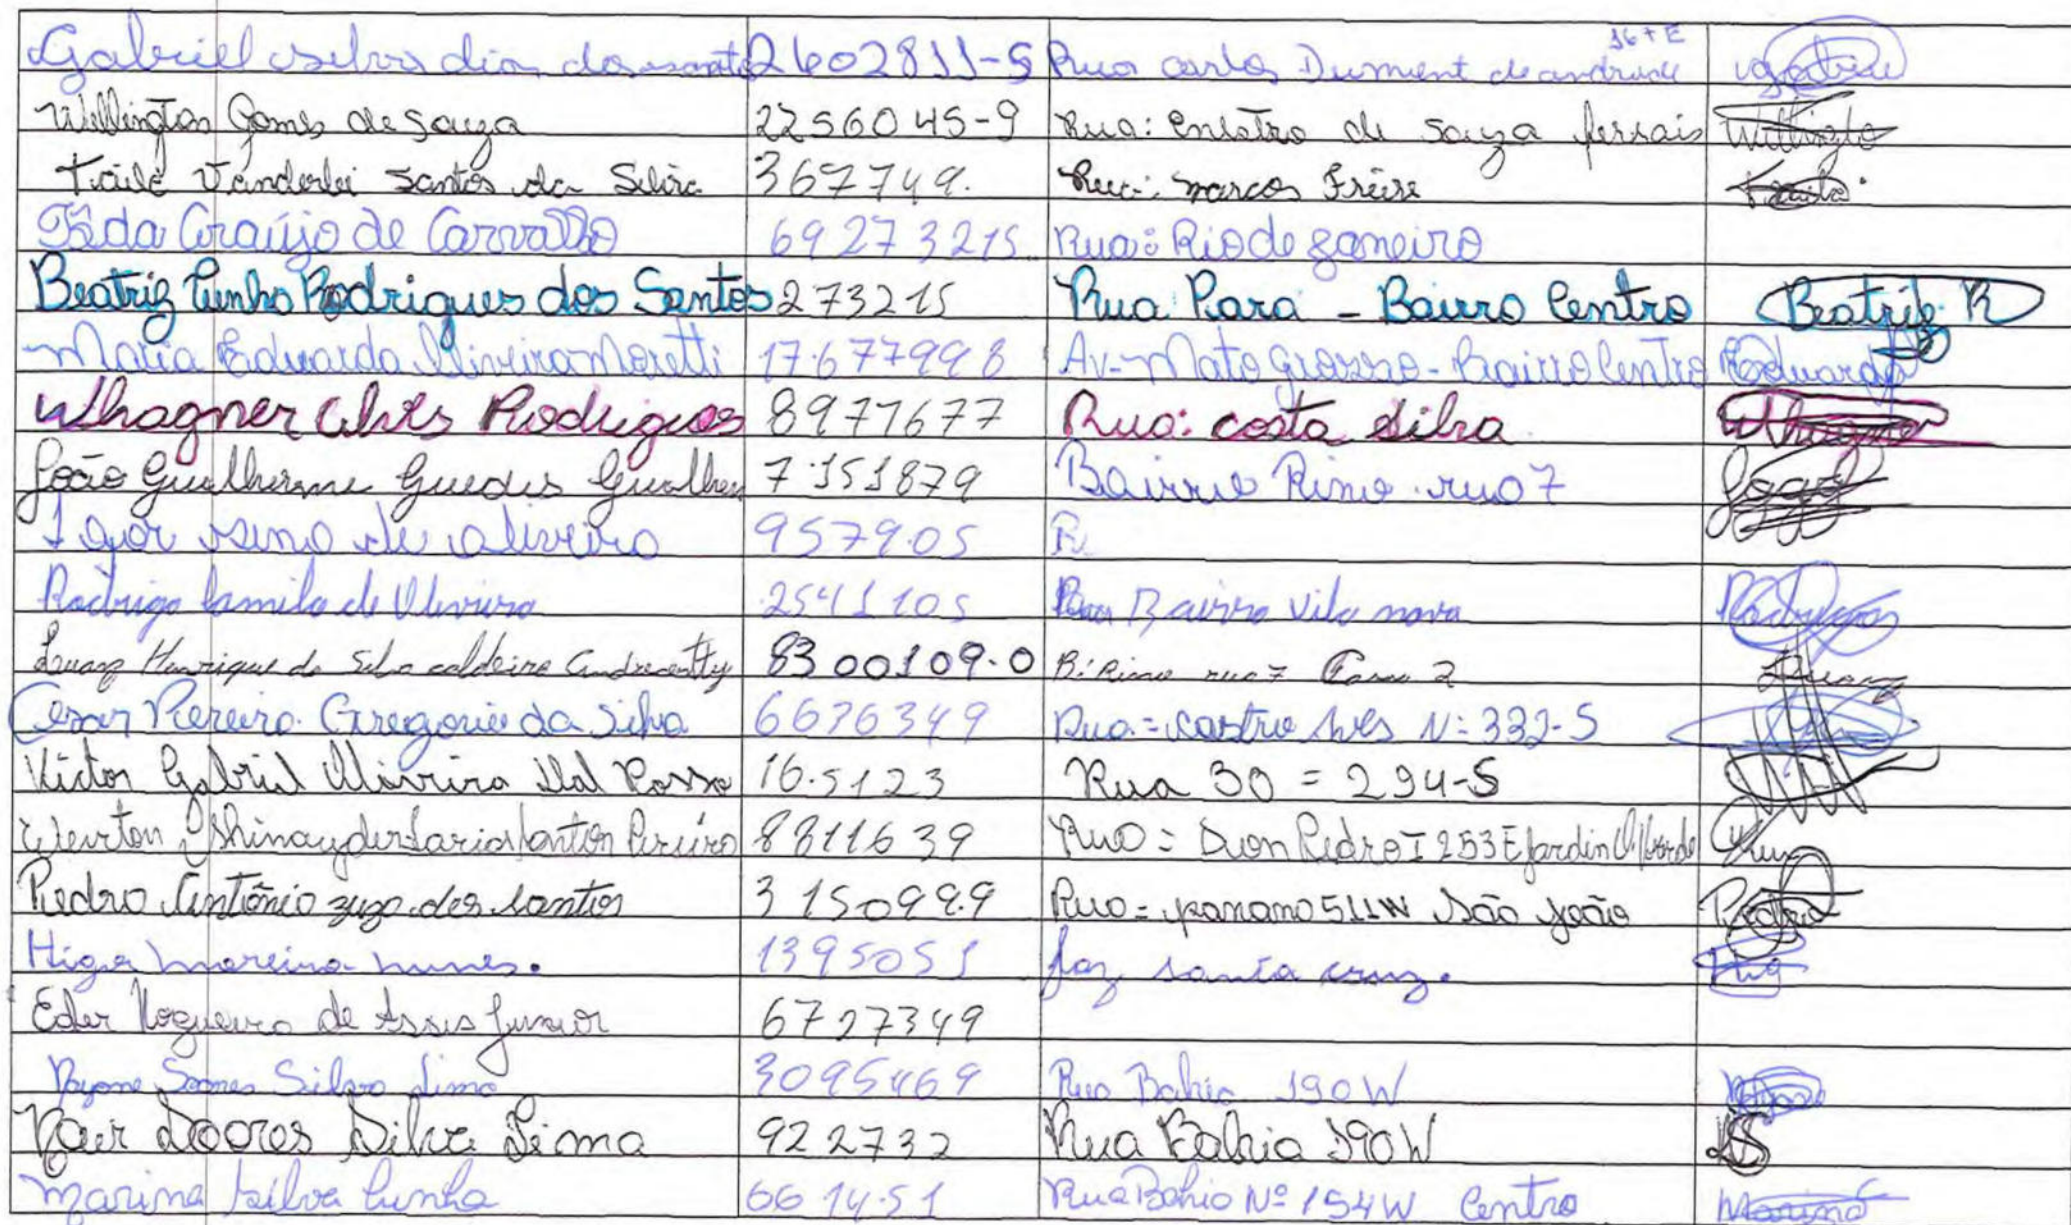 Gabriel silva dias dos santos 2602811-5 Rua carlos Dument de andrade 167 E
Wellington Gomes de Souza 2256045-9 Rua: de Souza
Vanderlei Santos da Silva 367749. Rua: Marcos Freire
Araújo de Carvalho 69273215 Rua: Rio de Janeiro
Beatriz Cunha Rodrigues dos Santos 273215 Rua Para - Bairro Centro Beatriz R
Maria Eduarda Oliveira Moretti 17.677998 Av- Mato grosso - Bairro Centro Eduarda
Whagner Alves Rodrigues 8977677 Rua: costa silva Whagner
João Guilherme Guedes 7.151879 Bairro rua 7 João
Igor de oliveira 957905 R
Rodrigo Camilo de Oliveira 2541105 Bairro Vila nova Rodrigo
Luang Henrique da Silva caldeira 8300109-0 B: rua 7 2 Luang
Cesar Pereira Gregorio da Silva 6676349 Rua = castro Alves N: 332-S
Victor Gabriel Oliveira Dal Posso 16.5123 Rua 30 = 294-S
8811639 Rua = Dom Pedro I 253 E Jardin
Pedro Antônio zuzo dos santos 3150999 Rua = panamo 511W São João Pedro
Higor moreira nunes. 1395051 faz santa cruz.
Eder Nogueira de Assis Junior 6727349
Soares Silva Lima 3095469 Rua Bahia 190W
Soares Silva Lima 922732 Rua Bahia 190W
Marina Silva Cunha 661451 Rua Bahia Nº 154W Centro Marina